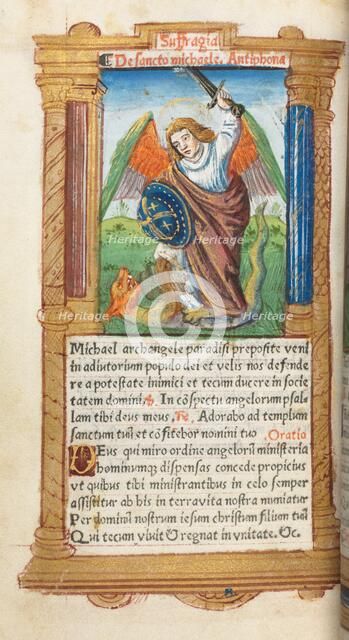 Suffragia
De sancto michaele. Antiphona
Heritage Heritage
Heritage Heritage
Michael archangele paradisi preposite veni
in adiutorium populo dei et velis nos defende
re a potestate inimici et tecum ducere in socie
tatem domini. ℣. In cōspectu angelorum psal
lam tibi deus meus. Re. Adorabo ad templum
sanctum tuū et cōfitebor nomini tuo Oratio
DEus qui miro ordine angelorū ministeria
hominumqꝫ dispensas concede propicius
vt quibus tibi ministrantibus in celo semper
assistitur ab his in terra vita nostra muniatur
Per dominū nostrum iesum christum filium tuū
Qui tecum viuit & regnat in vnitate. &c.
Heritage Heritage